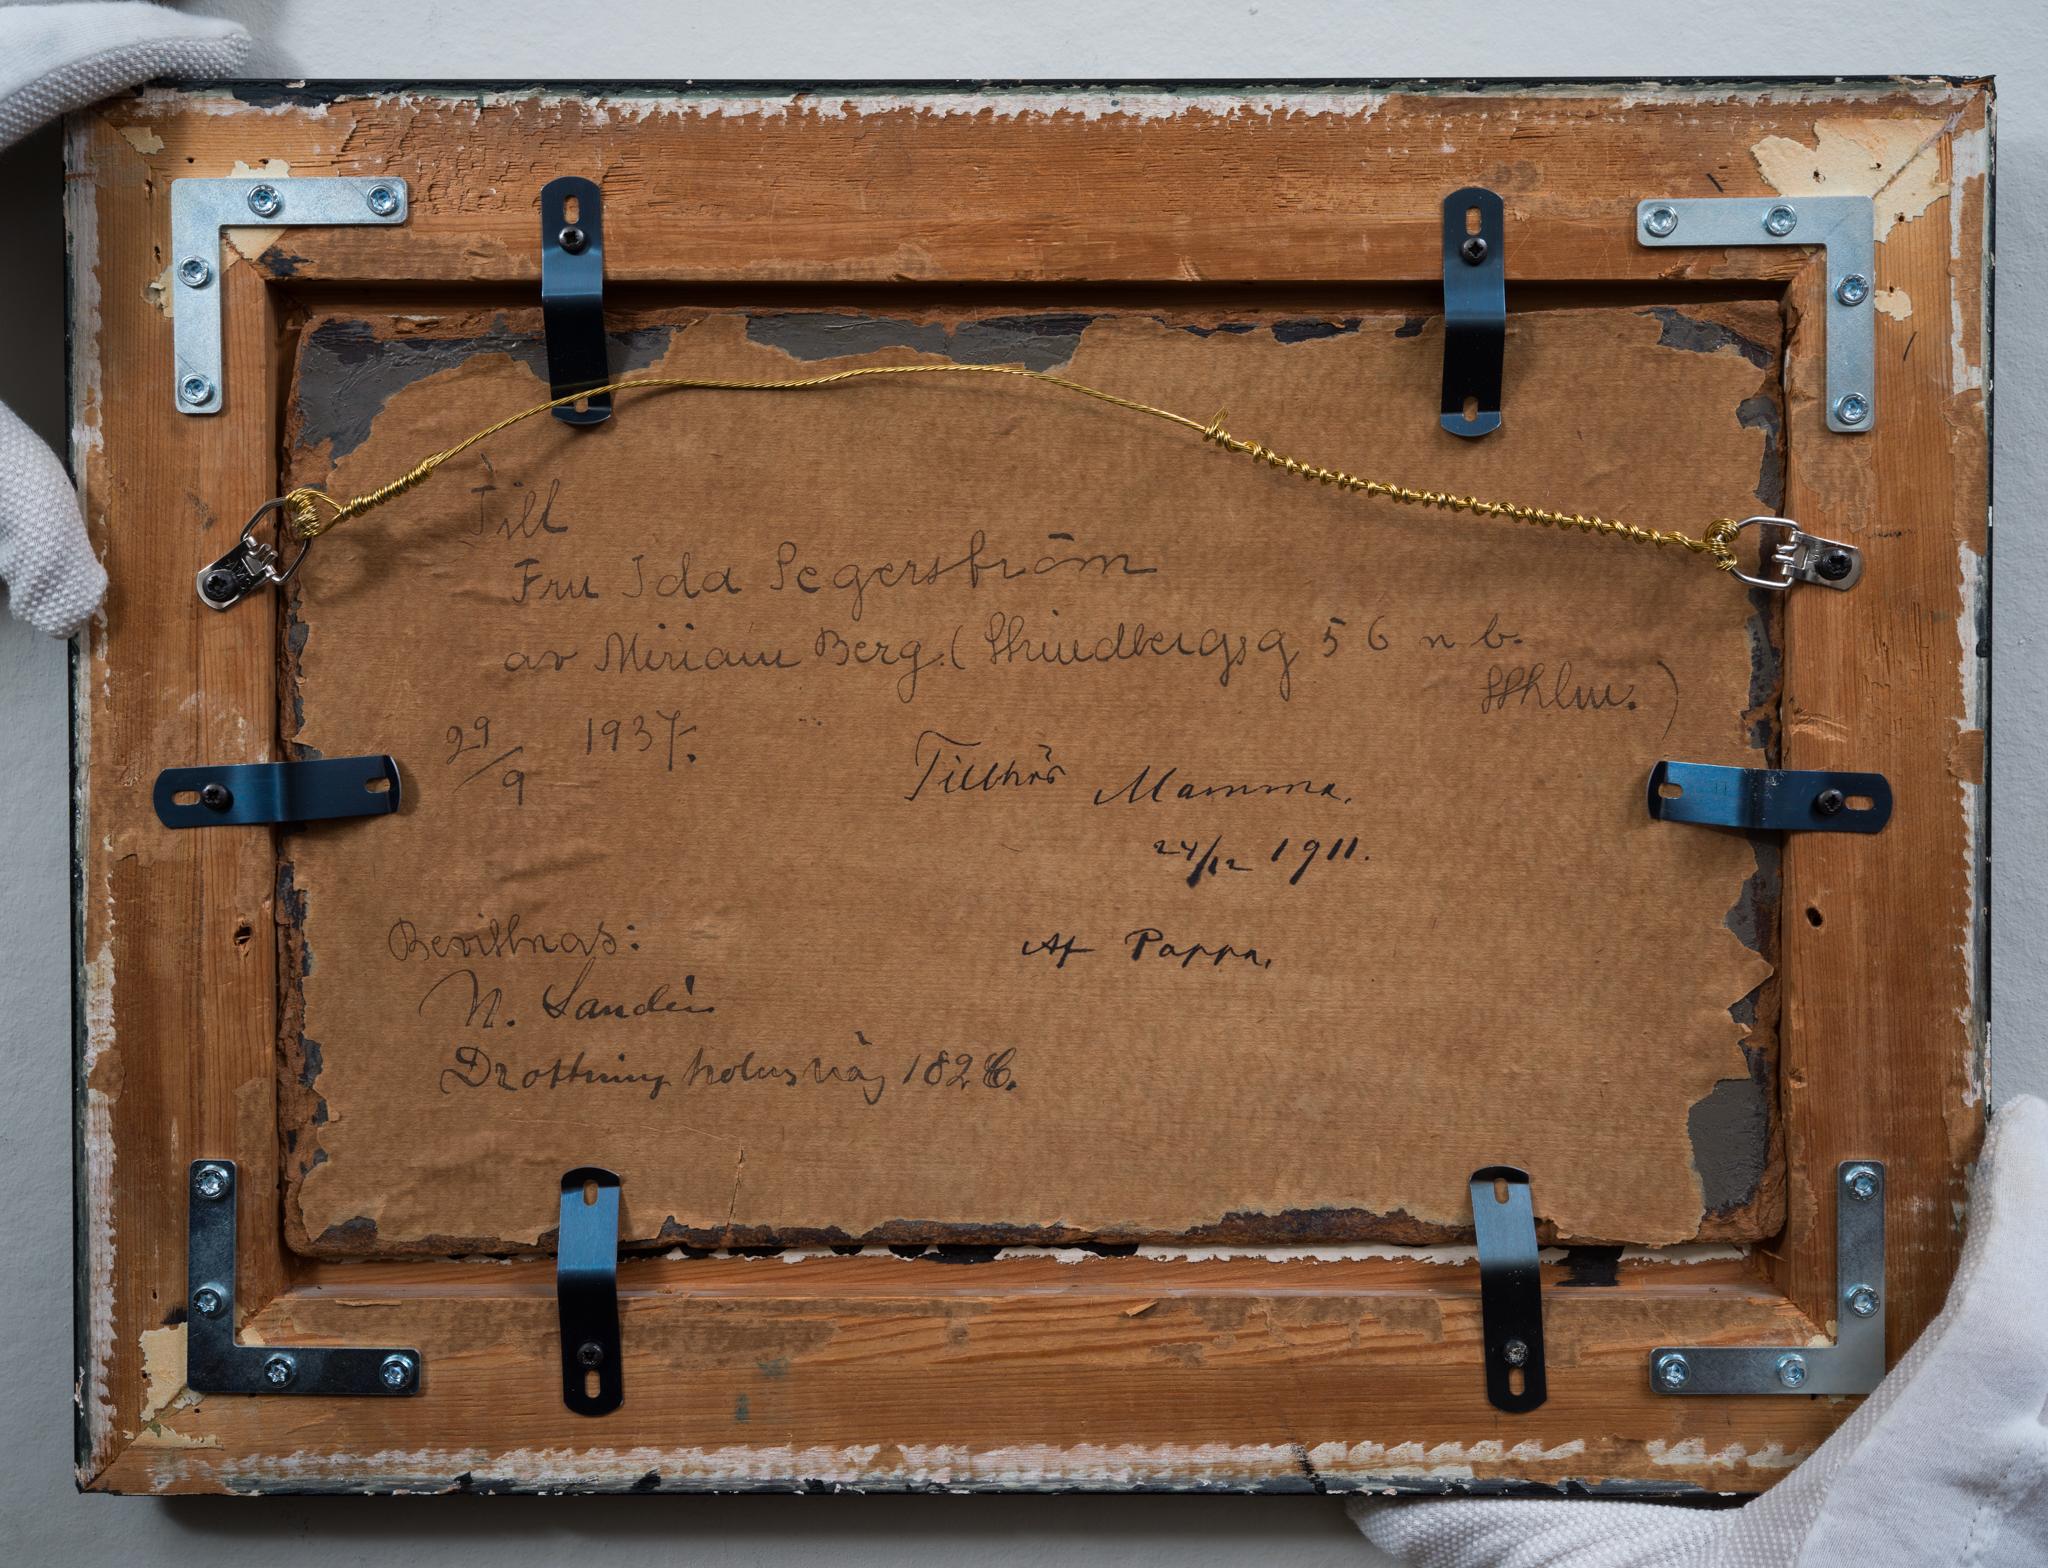 Till
Fru Ida Segerström
av Miriam Berg. (Strindbergsg 56 n. b.
Sthlm.)
29/9 1937.
Tillhör Mamma.
24/12 1911.
Af Pappa.
Bevittnas:
N. Sandén
Drottningholmsväg 182 C.